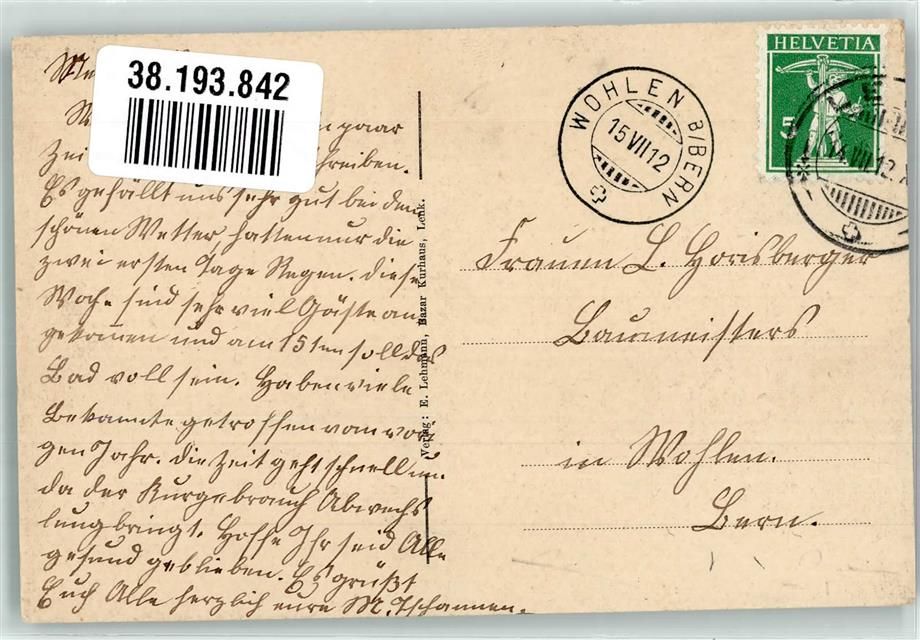 38.193.842
paar
Zei schreiben.
Es gefällt uns sehr gut bei dem
schönen Wetter, hatten nur die
zwei ersten Tage Regen. Diese
Woche sind sehr viel Gäste an
gekommen und am 15ten soll das
Bad voll sein. Haben viele
Bekannte getroffen vom vori
gen Jahr. Die Zeit geht schnell um.
da der Kurgebrauch Abwechs
lung bringt. Hoffe Ihr seid Alle
gesund geblieben. Es grüßt
Euch Alle herzlich eure M. Tschannen.
Verlag: E. Lehmann, Bazar Kurhaus, Lenk.
WOHLEN B/BERN
15 VII 12
HELVETIA
5
14 VII 12
Frauen L. Horisberger
Baumeisters
in Wohlen.
Bern.